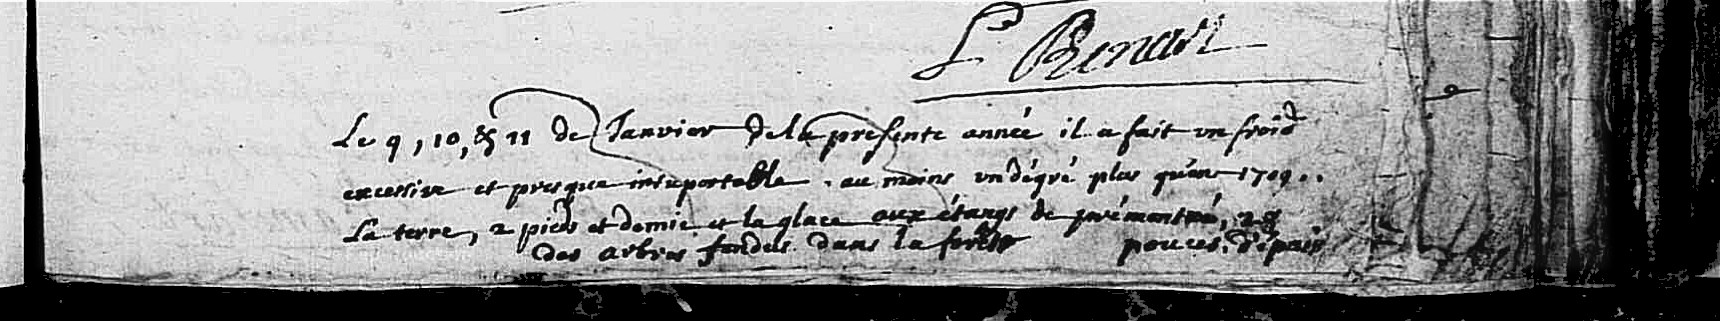 L Benart
Le 9, 10, & 11 de Janvier de la presente année il a fait un froid
excessive et presque insuportable. au moins un dégré plus qu'en 1709..
La terre, 2 pieds et demie et la glace aux étangs de prémontré, 28
des arbres fendus dans la forêst pouces. d'épais